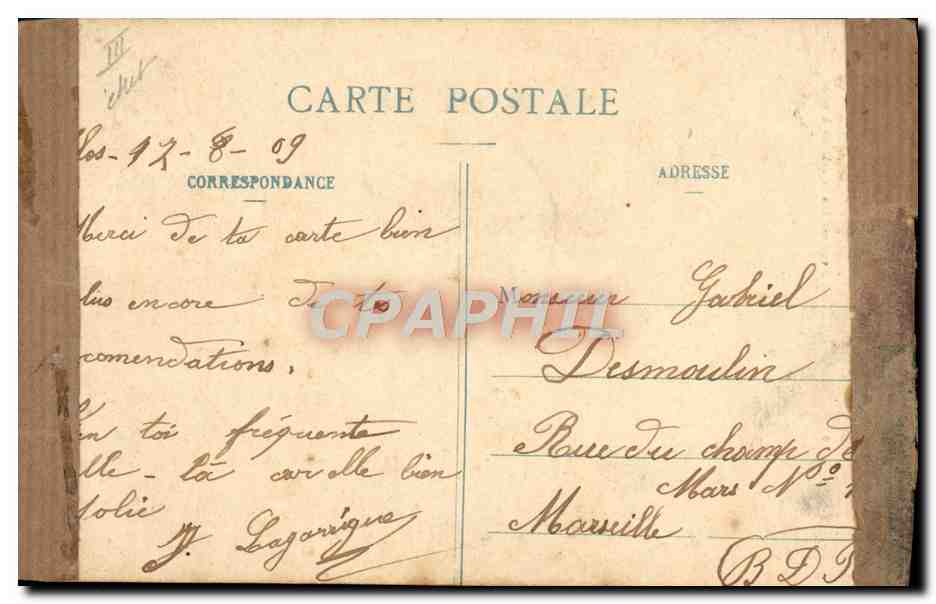 III
CARTE POSTALE
los - 12 - 8 - 09
CORRESPONDANCE
Merci de ta carte bien
lus encore de tes
comendations.
en toi fréquente
elle - là car elle bien
jolie
J. Lagarrigue
ADRESSE
Monsieur Gabriel
Desmoulin
Rue du champ de
Mars No
Marseille
B D R
CPAPHIL